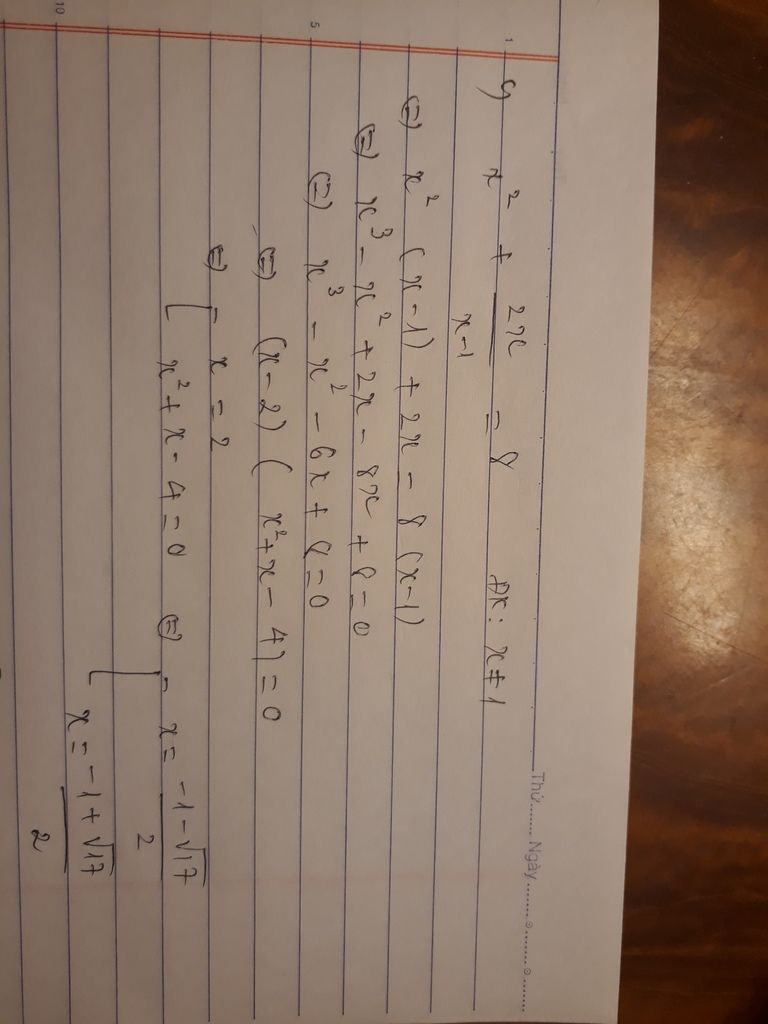 Thứ........ Ngày ........
1
c) x² + 2x/(x-1) = 8 ĐK: x ≠ 1
(=) x² (x-1) + 2x = 8 (x-1)
(=) x³ - x² + 2x - 8x + 8 = 0
5
(=) x³ - x² - 6x + 8 = 0
(=) (x-2) ( x² + x - 4) = 0
(=) [ x = 2
x² + x - 4 = 0 (=) [ x = (-1 - √17)/2
x = (-1 + √17)/2
10